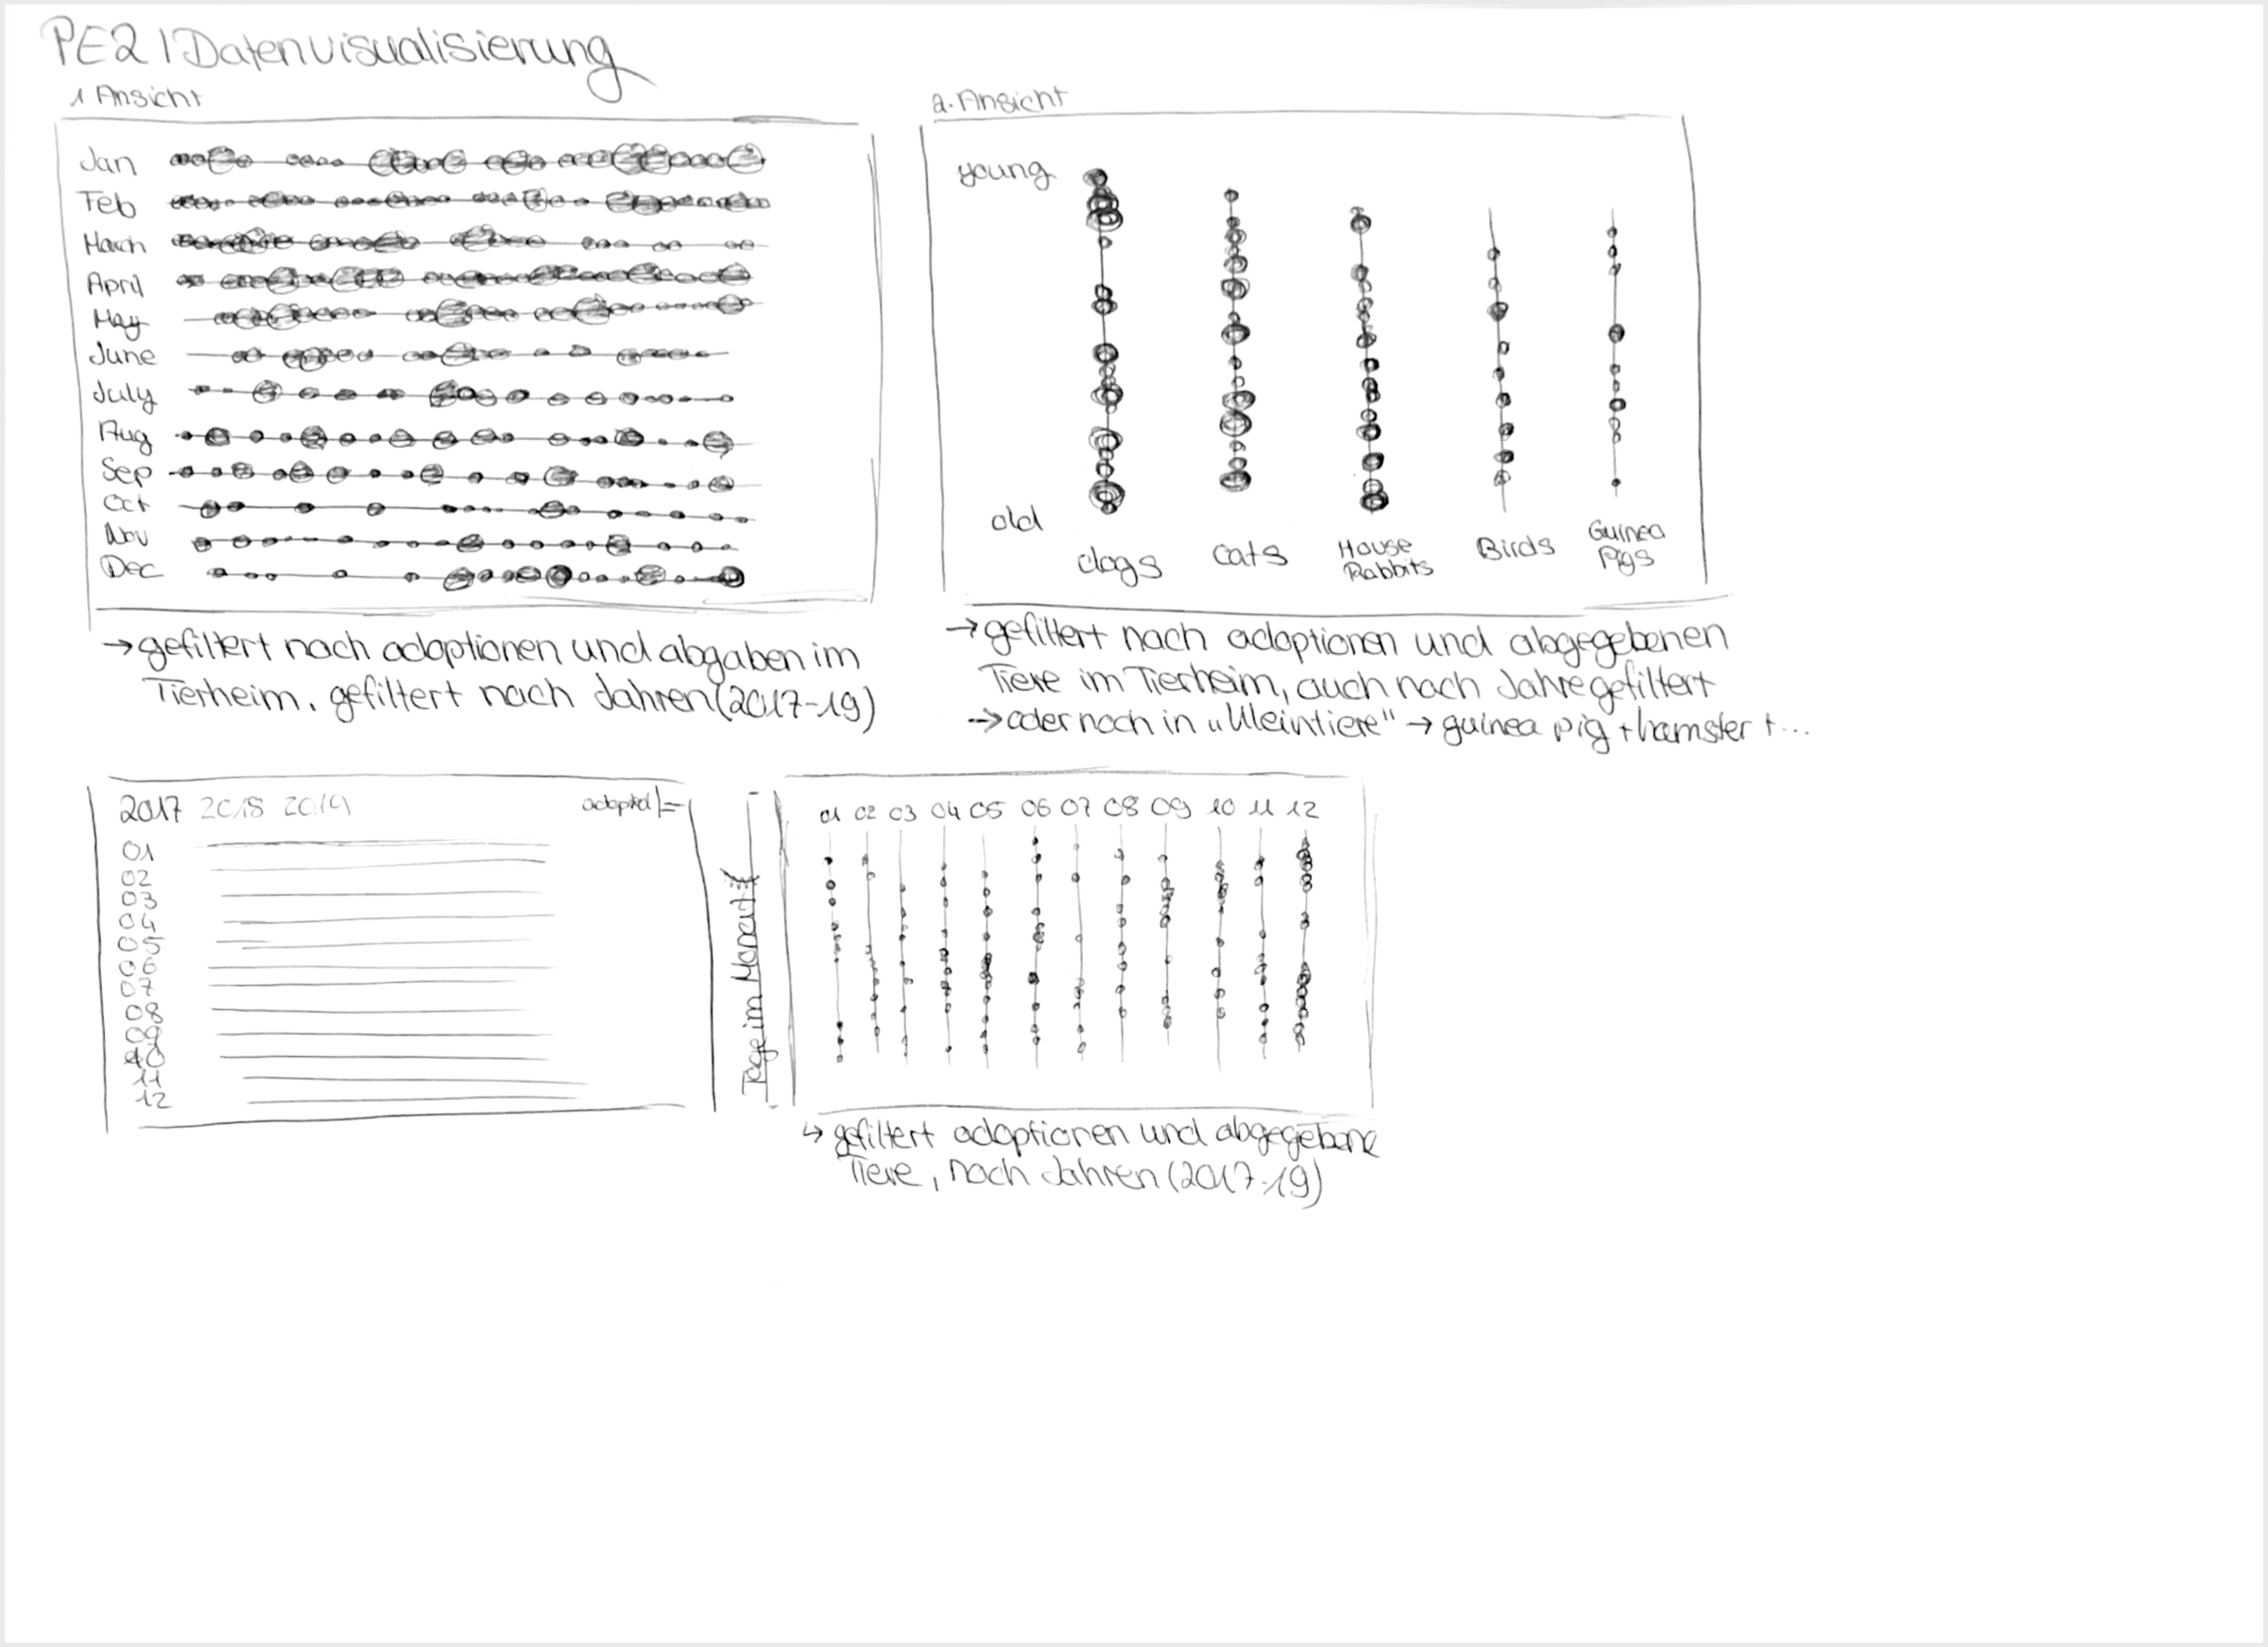 PE2 | Datenvisualisierung
1 Ansicht
Jan
Feb
March
April
May
June
July
Aug
Sep
Oct
Nov
Dec
→ gefiltert nach adoptionen und abgaben im
Tierheim. gefiltert nach Jahren (2017-19)
2. Ansicht
young
old
dogs
cats
House
Rabbits
Birds
Guinea
Pigs
→ gefiltert nach adoptionen und abgegebenen
Tiere im Tierheim, auch nach Jahre gefiltert
→ oder noch in „Kleintiere" → guinea pig + hamster + ...
2017 2018 2019
adopted
01
02
03
04
05
06
07
08
09
10
11
12
Tage im Monat
01 02 03 04 05 06 07 08 09 10 11 12
↳ gefiltert adoptionen und abgegebene
Tiere, nach Jahren (2017-19)